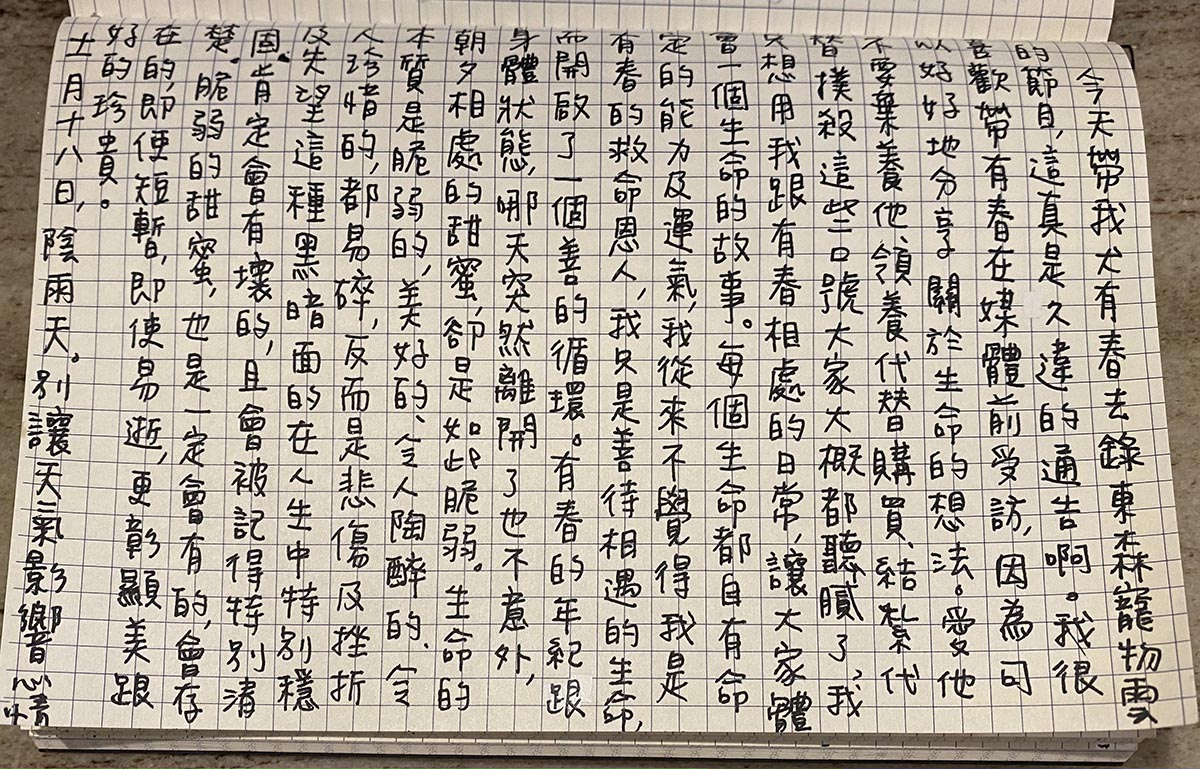 今天帶我犬有春去錄東森寵物雲
的節目，這真是久違的通告啊。我很
喜歡帶有春在媒體前受訪，因為可
以好好地分享關於生命的想法。愛他
不要棄養他、領養代替購買、結紮代
替撲殺這些口號大家大概都聽膩了，我
只想用我跟有春相處的日常，讓大家體
會一個生命的故事。每個生命都自有命
定的能力及運氣，我從來不覺得我是
有春的救命恩人，我只是善待相遇的生命，
而開啟了一個善的循環。有春的年紀跟
身體狀態，哪天突然離開了也不意外，
朝夕相處的甜蜜，卻是如此脆弱。生命的
本質是脆弱的，美好的、令人陶醉的、令
人珍惜的，都易碎，反而是悲傷及挫折
及失望這種黑暗面的在人生中特別穩
固。肯定會有壞的，且會被記得特別清
楚。脆弱的甜蜜，也是一定會有的，會存
在的，即便短暫，即使易逝，更彰顯美跟
好的珍貴。
十一月十八日，陰雨天。別讓天氣影響心情